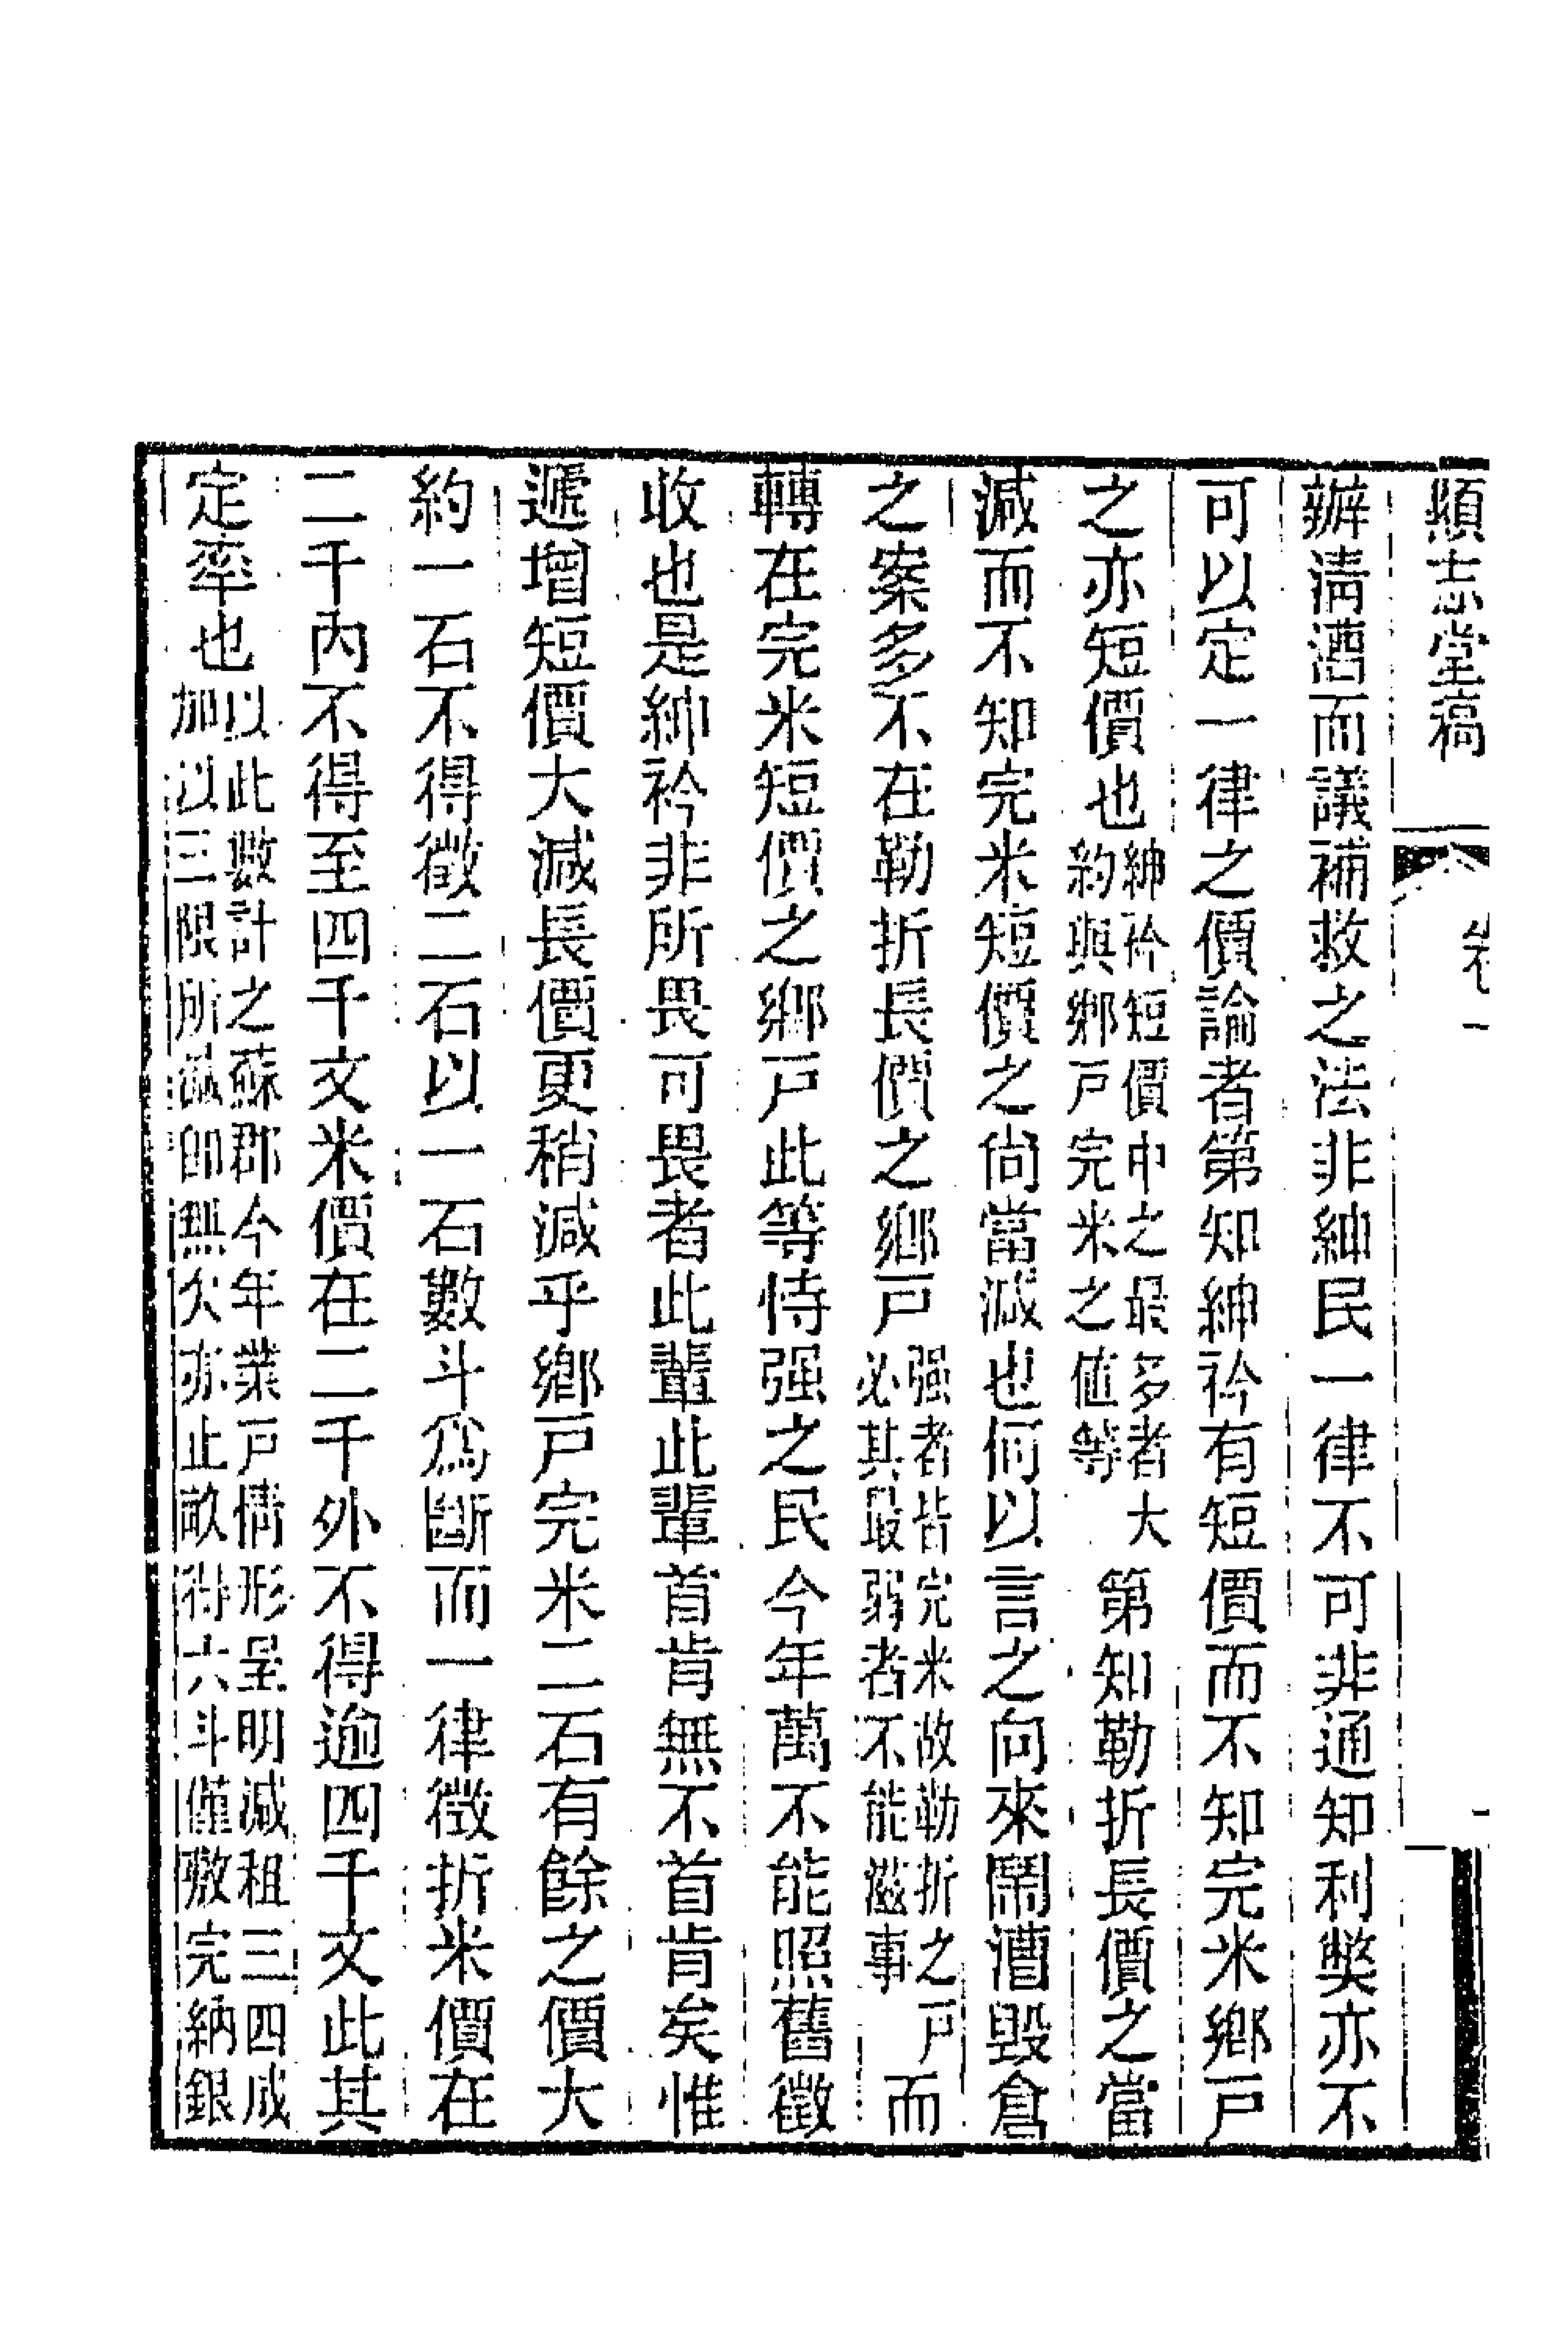 顯志堂稿　卷一
辦清漕而議補救之法非紳民一律不可非通知利獘亦不
可以定一律之價論者第知紳衿有短價而不知完米鄉戸
之亦短價也紳衿短價中之最多者大約與鄉戸完米之值等第知勒折長價之當
減而不知完米短價之尙當減也何以言之向來鬧漕毀倉
之案多不在勒折長價之鄉戸强者皆完米故勒折之戸必其最弱者不能滋事而
轉在完米短價之鄉戸此等恃强之民今年萬不能照舊徵
收也是紳衿非所畏可畏者此輩此輩首肯無不首肯矣惟
遞增短價大減長價更稍減乎鄉戸完米二石有餘之價大
約一石不得徵二石以一石數斗爲斷而一律徵折米價在
二千內不得至四千文米價在二千外不得逾四千文此其
定率也以此數計之蘇郡今年業戸情形呈明減租三四成加以三限所減卽無欠亦止畝得六斗僅敷完納銀